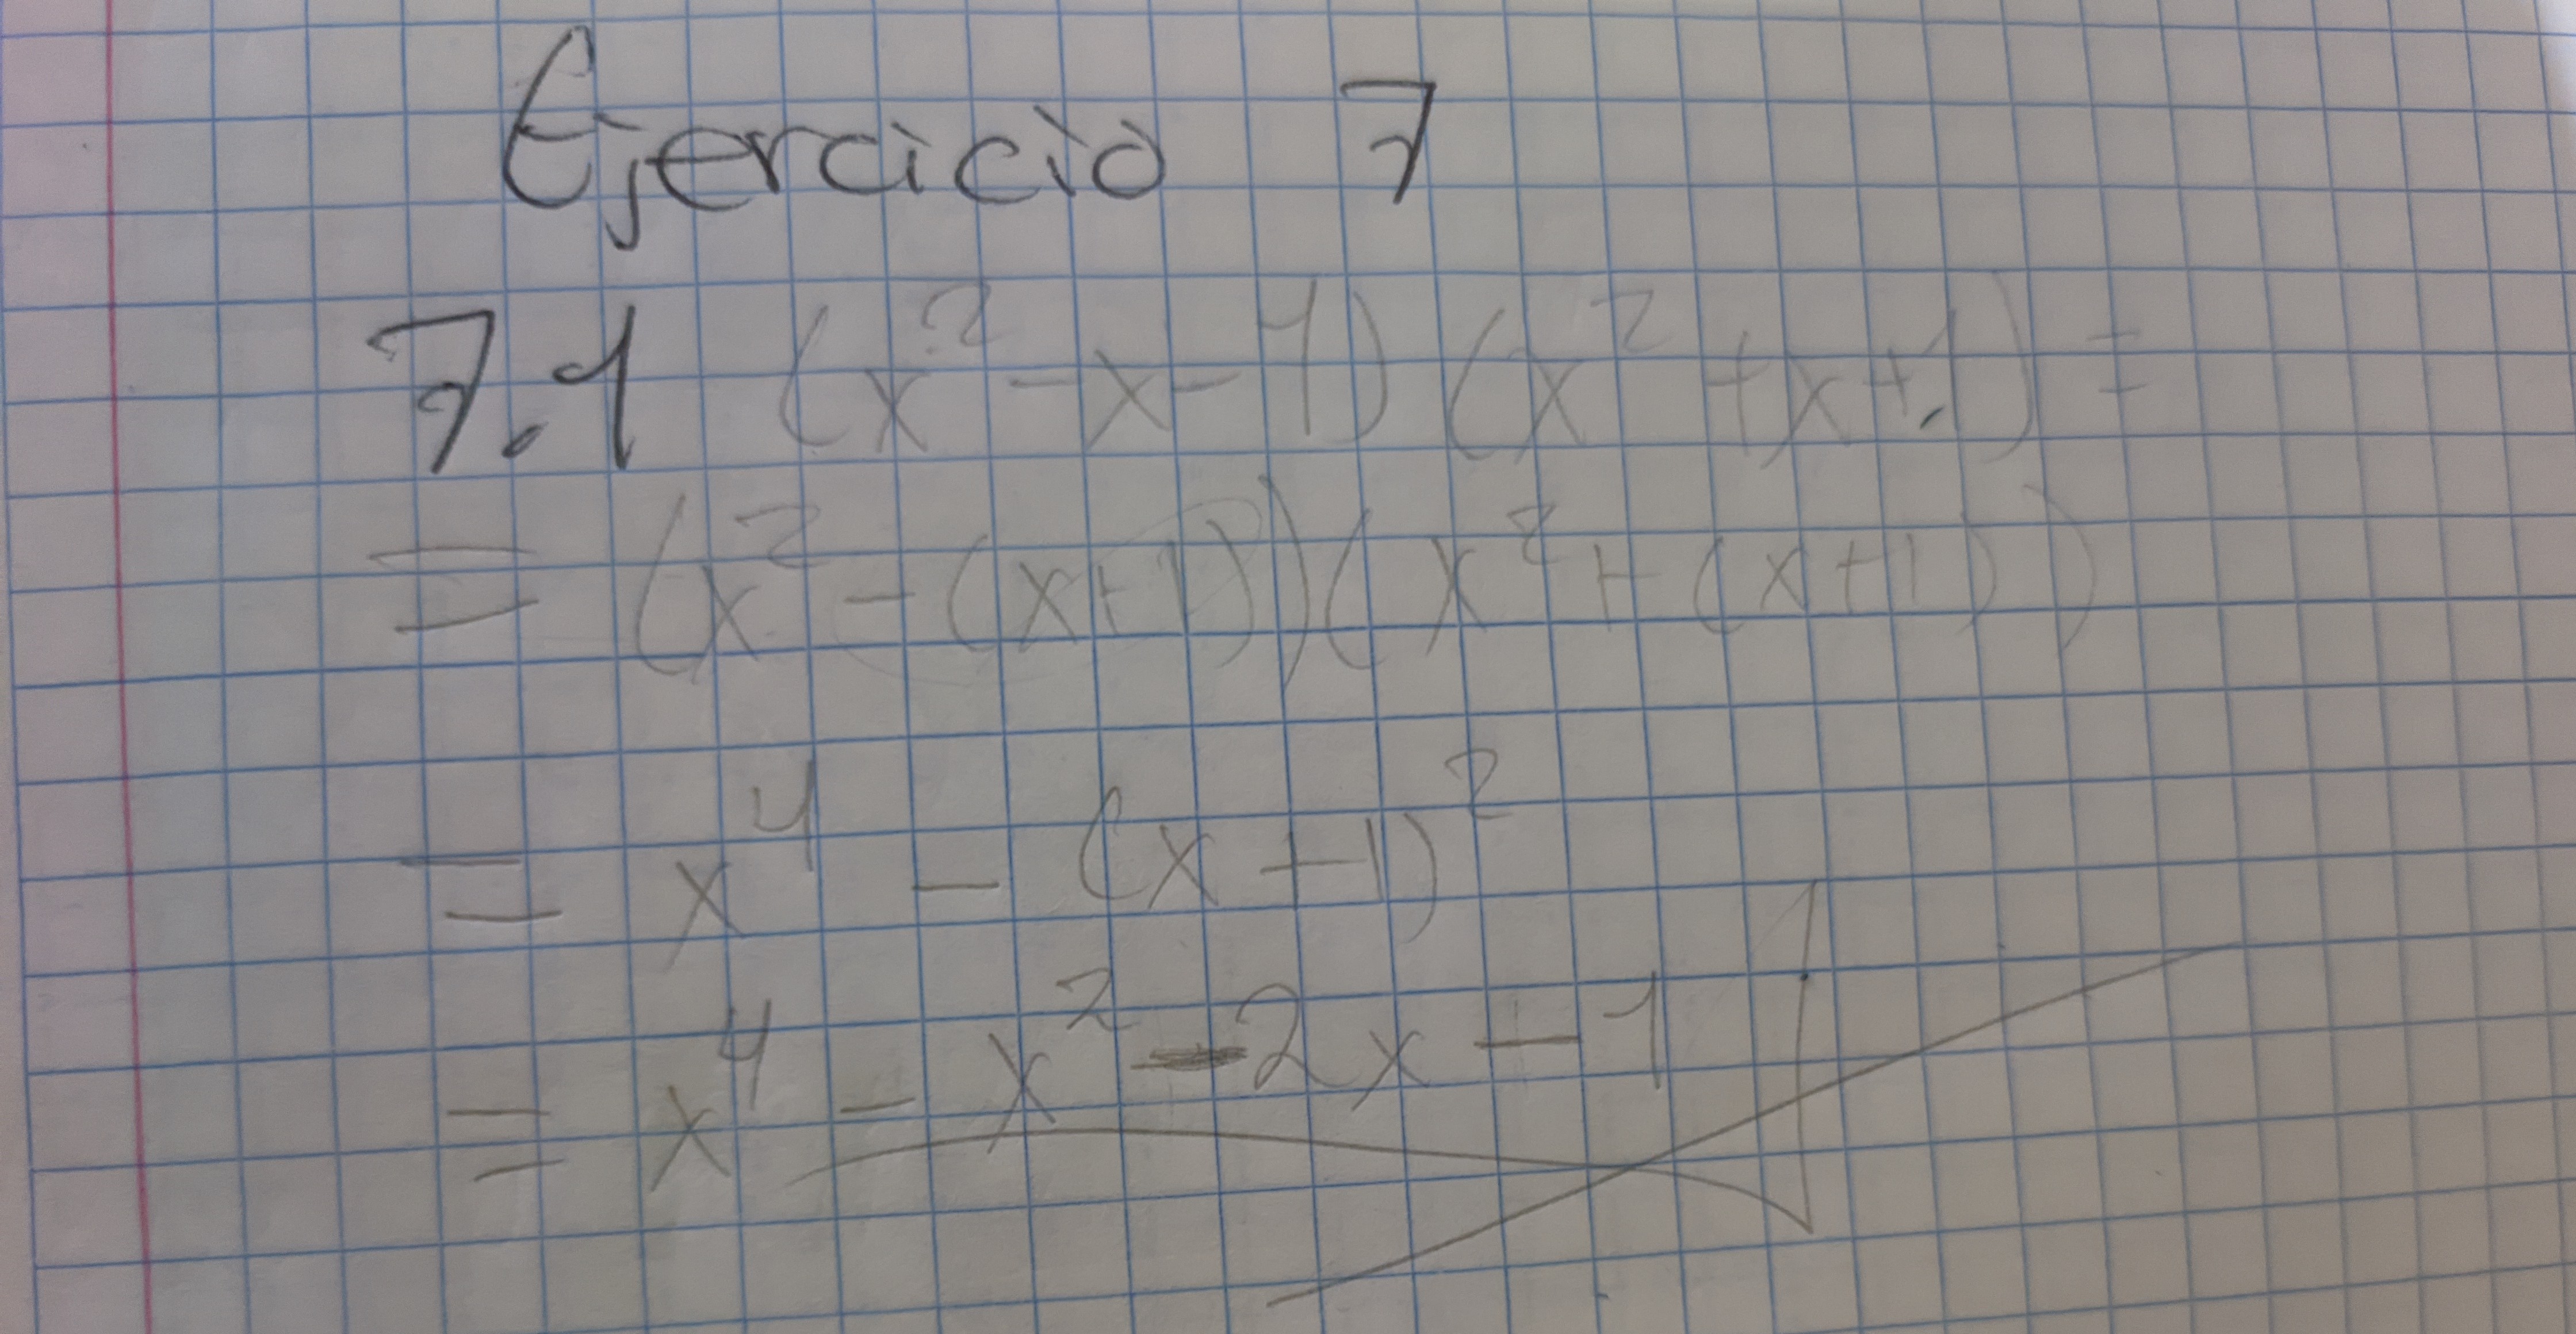 Ejercicio 7
7.1 (x² - x - 1)(x² + x + 1) =
= (x² - (x+1))(x² + (x+1))
= x⁴ - (x+1)²
= x⁴ - x² - 2x - 1